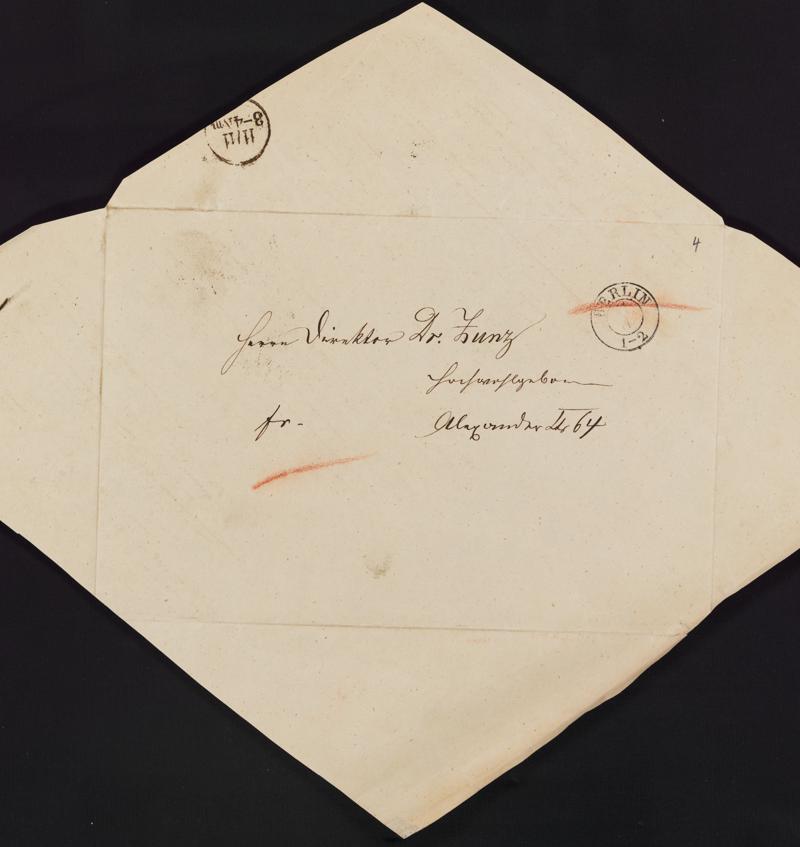 11/11
3-4 Nm
4
BERLIN
1-2
Herrn Direktor Dr. Zunz
Hochwohlgeboren
fr.
Alexander Str 64